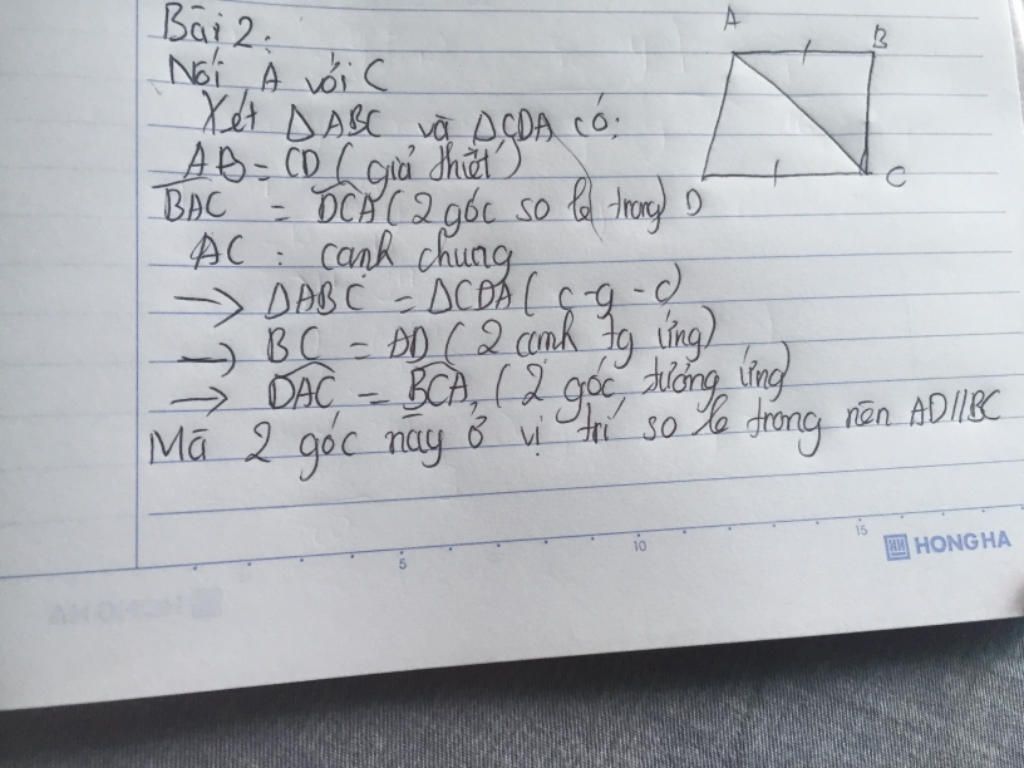 Bài 2:
Nối A với C
Xét ΔABC và ΔCDA có:
AB = CD (giả thiết)
BAC = DCA (2 góc so le trong)
AC : cạnh chung
→ ΔABC = ΔCDA (c-g-c)
→ BC = AD (2 cạnh tg ứng)
→ DAC = BCA, (2 góc tương ứng)
Mà 2 góc này ở vị trí so le trong nên AD//BC
A
B
C
D
5
10
15
HH HONG HA